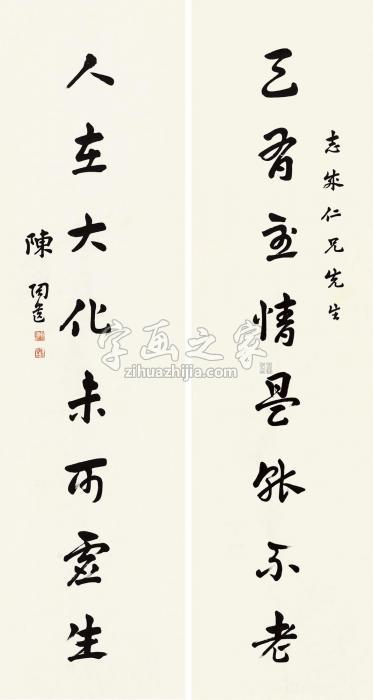 志成仁兄先生
己有至情是能不老
人在大化未可虛生
陳陶遺
字画之家
zihuazhijia.com